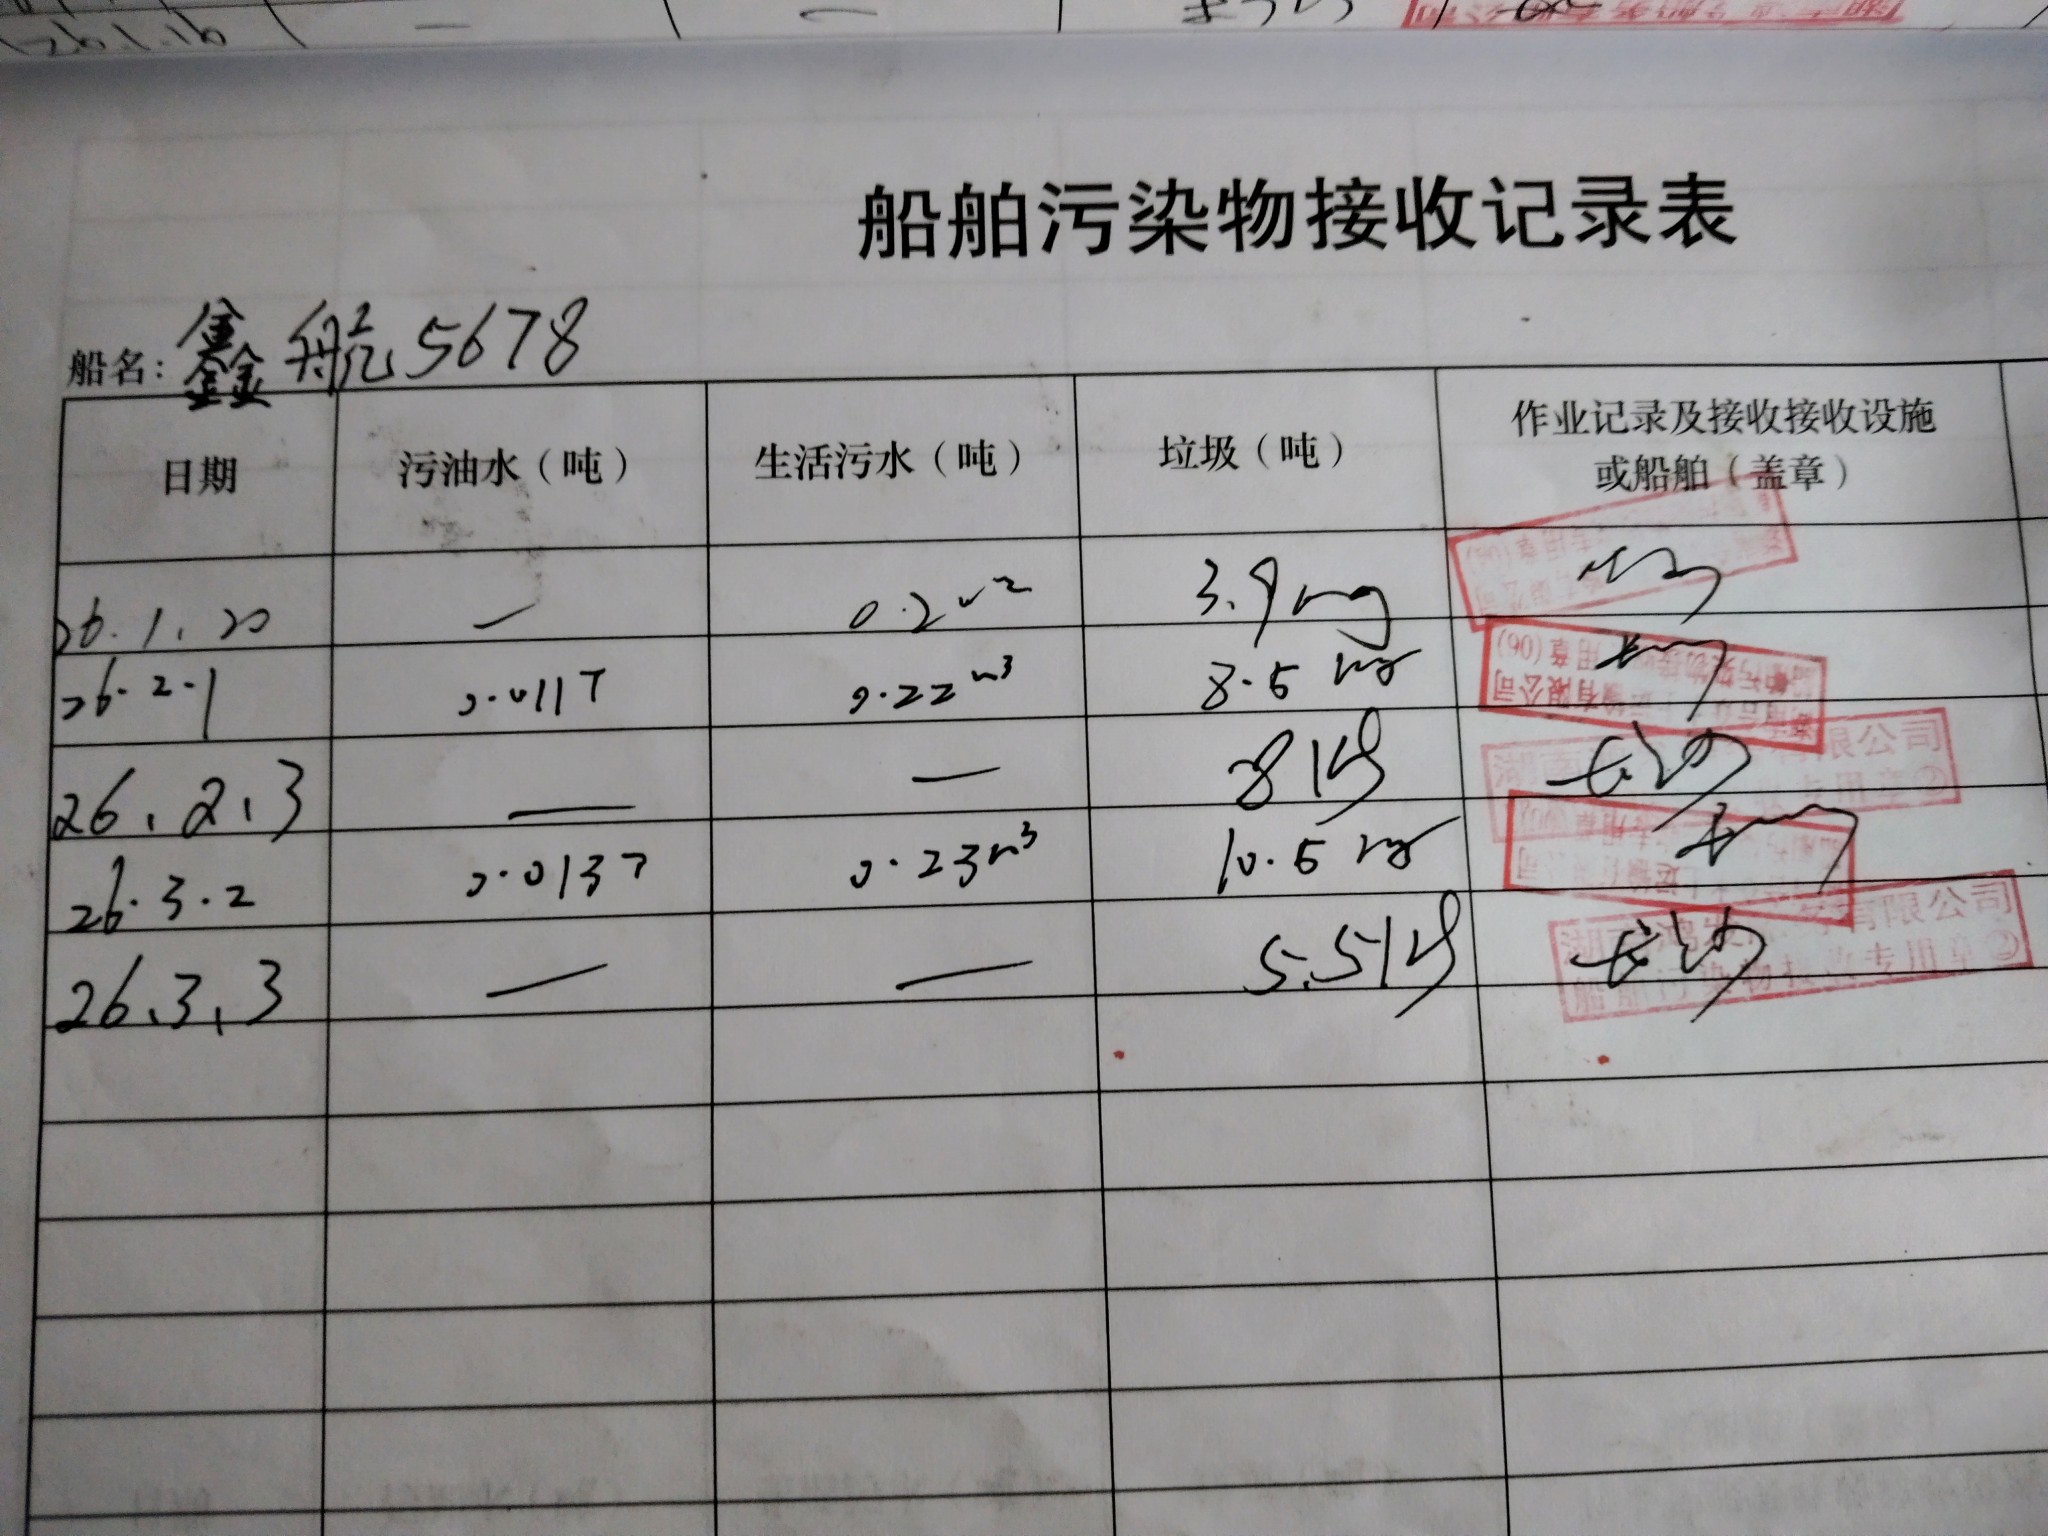 26.1.16 — —
船舶污染物接收记录表
船名: 鑫航5678
日期 污油水（吨） 生活污水（吨） 垃圾（吨） 作业记录及接收接收设施
或船舶（盖章）
26.1.20 — 0.2 3.9kg
26.2.1 0.011T 0.22m³ 8.5kg
有限公司
26.2.3 — — 8kg 长沙
有限公司
专用章②
26.3.2 0.013T 0.23m³ 10.5kg
26.3.3 — — 5.5kg 长沙
有限公司
船舶污染物接收专用章②